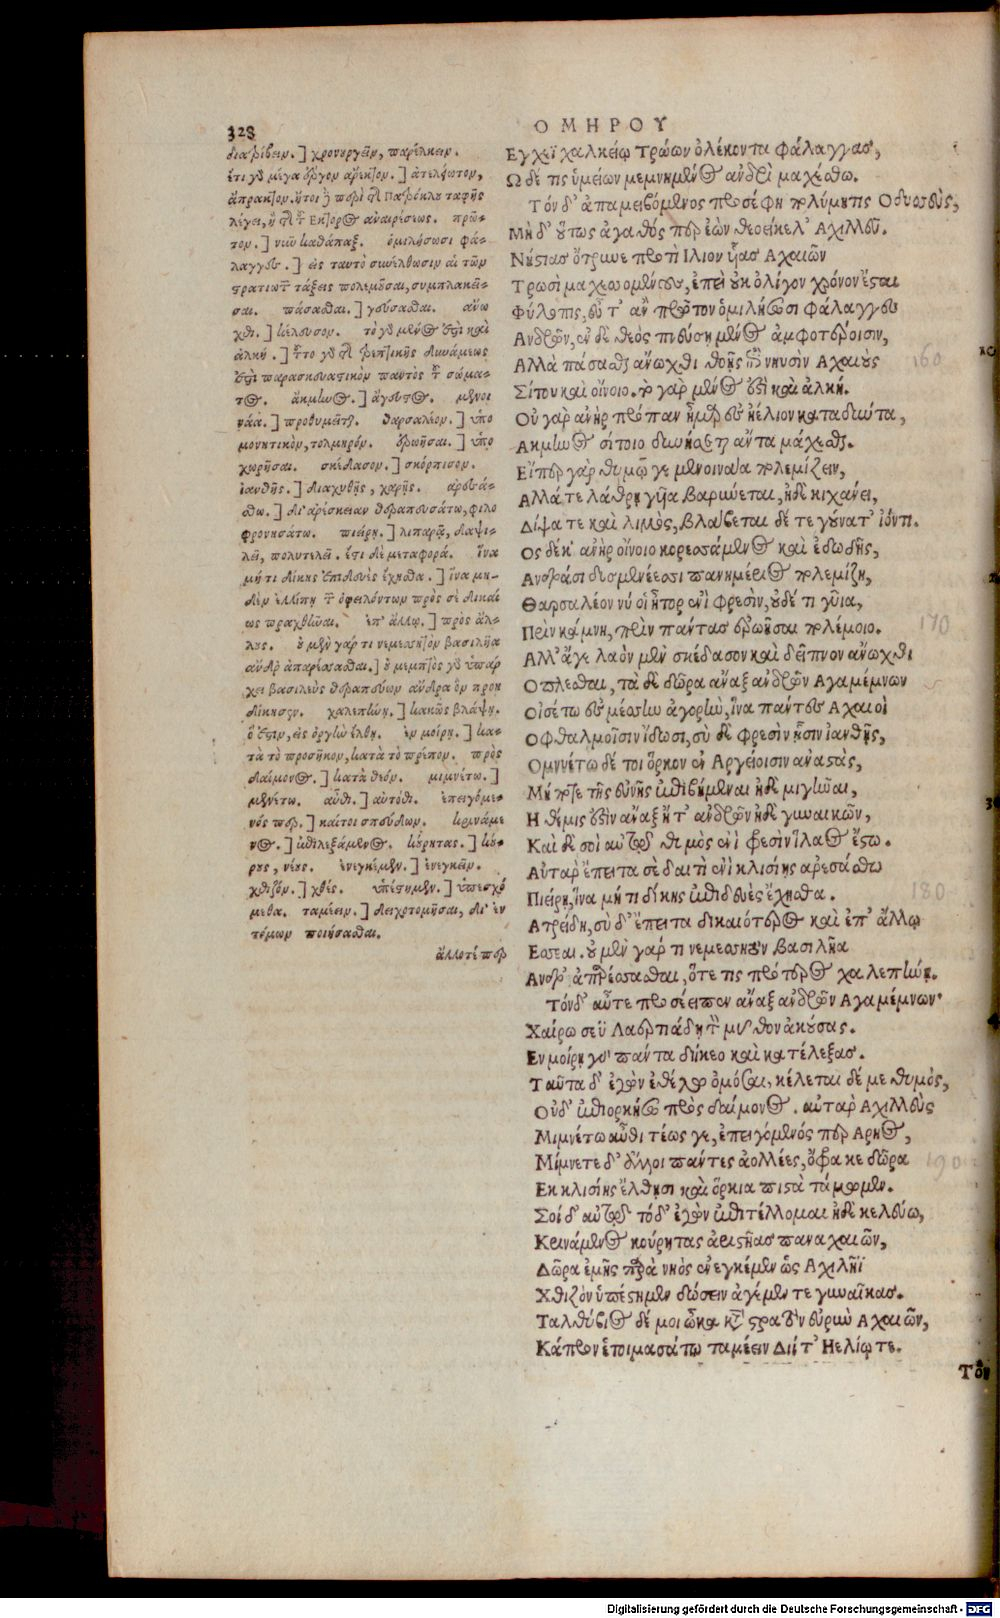 328
ΟΜΗΡΟΥ
διατρίβειν.] χρονουργεῖν, παρέλκειν.
ἔτι γὸ μέγα ἔργον ἄρεκτον.] ἀτελείωτον,
ἄπρακτον. ἤτοι ἢ περὶ τῆς Πατρόκλου ταφῆς
λέγει, ἢ τῆς τοῦ Εκτορος ἀναιρέσεως. πρῶ-
τον.] νῦν καθάπαξ. ὁμιλήσωσι φά-
λαγγες.] εἰς ταυτὸ συνέλθωσιν αἱ τῶν
στρατιωτῶν τάξεις πολεμοῦσαι, συμπλακεῖ-
σαι. πάσασθαι.] γεύσασθαι. ἄνω
χθι.] κέλευσον. τὸ γὸ μένος ἐστὶ καὶ
ἀλκή.] τοῦτο γὸ τῆς θρεπτικῆς δυνάμεως
ἐστὶ παρασκευαστικὸν παντὸς τοῦ σώμα-
τος. ἄκμηνος.] ἄγευστος. μενοι
νάα.] προθυμεῖται. θαρσαλέον.] ὑπο
μονητικὸν, τολμηρόν. ἐρωῆσαι.] ὑπο
χωρῆσαι. σκέδασον.] σκόρπισον.
ἰανθῇς.] διαχυθῇς, χαρῇς. ἀρεσά-
σθω.] δι' ἀρίσκειαν θεραπευσάτω, φιλο
φρονησάτω. πιείρῃ.] λιπαρᾷ, δαψι-
λεῖ, πολυτελεῖ. ἔστι δὲ μεταφορά. ἵνα
μή τι δίκης ἐπιδευὲς ἔχησθα.] ἵνα μη-
δὲν ἐλλίπῃ τῶν ὀφειλόντων πρὸς σὲ δικαί
ως πραχθῆναι. ἐπ' ἄλλῳ.] πρὸς ἄλ-
λους. οὐ μὲν γάρ τι νεμεσητὸν βασιλῆα
ἄνδρ' ἀπαρέσσασθαι.] οὐ μεμπτὸς γὸ ὑπάρ
χει βασιλεὺς θεραπεύων ἄνδρα ὃν προη
δίκησεν. χαλεπήνῃ.] κακῶς βλάψῃ.
ὅ ἐστιν, εἰς ὀργὴν ἔλθῃ. ἐν μοίρῃ.] κα-
τὰ τὸ προσῆκον, κατὰ τὸ πρέπον. πρὸς
δαίμονος.] κατὰ θεόν. μιμνέτω.]
μενέτω. αὖθι.] αὐτόθι. ἐπειγόμε-
νός περ.] καίτοι σπεύδων. κρινάμε
νος.] ἐπιλεξάμενος. κούρητας.] κού-
ρους, νέους. ἐνεγκέμεν.] ἐνεγκεῖν.
χθιζόν.] χθές. ὑπέστημεν.] ὑπεσχό
μεθα. ταμέειν.] δειροτομῆσαι, δι' ἐν
τόμων ποιήσασθαι.
ἄλλοτέ περ
Εγχεϊ χαλκείῳ Τρώων ὀλέκοντα φάλαγγας,
Ωδέ τις ὑμείων μεμνημένος ἀνδρὶ μαχέσθω.
Τόνδ' ἀπαμειβόμενος προσέφη πολύμητις Οδυσσεὺς,
Μὴ δ' οὕτως ἀγαθός περ ἐὼν θεοείκελ' Αχιλλεῦ.
Νήστιας ὄτρυνε προτὶ Ιλιον υἷας Αχαιῶν
Τρωσὶ μαχεσομένους, ἐπεὶ οὐκ ὀλίγον χρόνον ἔσται
Φύλοπις, εὖτ' ἂν πρῶτον ὁμιλήσωσι φάλαγγες
Ανδρῶν, ἐν δὲ θεὸς πνεύσῃ μένος ἀμφοτέροισιν,
Αλλὰ πάσασθαι ἄνωχθι θοῇς ἐπὶ νηυσὶν Αχαιοὺς
Σίτου καὶ οἴνοιο. τὸ γὰρ μένος ἐστὶ καὶ ἀλκή.
Οὐ γὰρ ἀνὴρ πρόπαν ἦμαρ ἐς ἠέλιον καταδύντα,
Ακμηνος σίτοιο δυνήσεται ἄντα μάχεσθαι.
Εἴπερ γὰρ θυμῷ γε μενοινάᾳ πολεμίζειν,
Αλλά τε λάθρῃ γυῖα βαρύνεται, ἠδὲ κιχάνει,
Δίψα τε καὶ λιμὸς, βλάβεται δέ τε γούνατ' ἰόντι.
Ος δέ κ' ἀνὴρ οἴνοιο κορεσσάμενος καὶ ἐδωδῆς,
Ανδράσι δυσμενέεσσι πανημέριος πολεμίζῃ,
Θαρσαλέον νύ οἱ ἦτορ ἐνὶ φρεσὶν, οὐδέ τι γυῖα,
Πρὶν κάμνῃ, πρὶν πάντας ἐρωῆσαι πολέμοιο.
Αλλ' ἄγε λαὸν μὲν σκέδασον καὶ δεῖπνον ἄνωχθι
Οπλεσθαι, τὰ δὲ δῶρα ἄναξ ἀνδρῶν Αγαμέμνων
Οἰσέτω ἐς μέσσην ἀγορὴν, ἵνα πάντες Αχαιοὶ
Οφθαλμοῖσιν ἴδωσι, σὺ δὲ φρεσὶν ᾗσιν ἰανθῇς,
Ομνυέτω δέ τοι ὅρκον ἐν Αργείοισιν ἀναστὰς,
Μήποτε τῆς εὐνῆς ἐπιβήμεναι ἠδὲ μιγῆναι,
Η θέμις ἐστὶν ἄναξ ἤ τ' ἀνδρῶν ἠδὲ γυναικῶν,
Καὶ δὲ σοὶ αὐτῷ θυμὸς ἐνὶ φρεσὶν ἵλαος ἔστω.
Αὐτὰρ ἔπειτα σὲ δαιτὶ ἐνὶ κλισίῃς ἀρεσάσθω
Πιείρῃ, ἵνα μή τι δίκης ἐπιδευὲς ἔχησθα.
Ατρείδη, σὺ δ' ἔπειτα δικαιότερος καὶ ἐπ' ἄλλῳ
Εσσεαι. οὐ μὲν γάρ τι νεμεσητὸν βασιλῆα
Ανδρ' ἀπαρέσσασθαι, ὅτε τις πρότερος χαλεπήνῃ.
Τόνδ' αὖτε προσέειπεν ἄναξ ἀνδρῶν Αγαμέμνων·
Χαίρω σεῦ Λαερτιάδη τὸν μῦθον ἀκούσας.
Εν μοίρῃ γὸ πάντα διίκεο καὶ κατέλεξας.
Ταῦτα δ' ἐγὼν ἐθέλω ὀμόσαι, κέλεται δέ με θυμὸς,
Οὐδ' ἐπιορκήσω πρὸς δαίμονος. αὐτὰρ Αχιλλεὺς
Μιμνέτω αὖθι τέως γε, ἐπειγόμενός περ Αρηος,
Μίμνετε δ' ἄλλοι πάντες ἀολλέες, ὄφρα κε δῶρα
Εκ κλισίης ἔλθῃσι καὶ ὅρκια πιστὰ τάμωμεν.
Σοὶ δ' αὐτῷ τόδ' ἐγὼν ἐπιτέλλομαι ἠδὲ κελεύω,
Κρινάμενος κούρητας ἀριστῆας παναχαιῶν,
Δῶρα ἐμῆς παρὰ νηὸς ἐνεγκέμεν ὡς Αχιλῆϊ
Χθιζὸν ὑπέστημεν δώσειν ἀγέμεν τε γυναῖκας.
Ταλθύβιος δέ μοι ὦκα κατὰ στρατὸν εὐρὺν Αχαιῶν,
Κάπρον ἑτοιμασάτω ταμέειν Διί τ' Ηελίῳ τε.
Τὸν
160
170
180
190
Digitalisierung gefördert durch die Deutsche Forschungsgemeinschaft - DFG